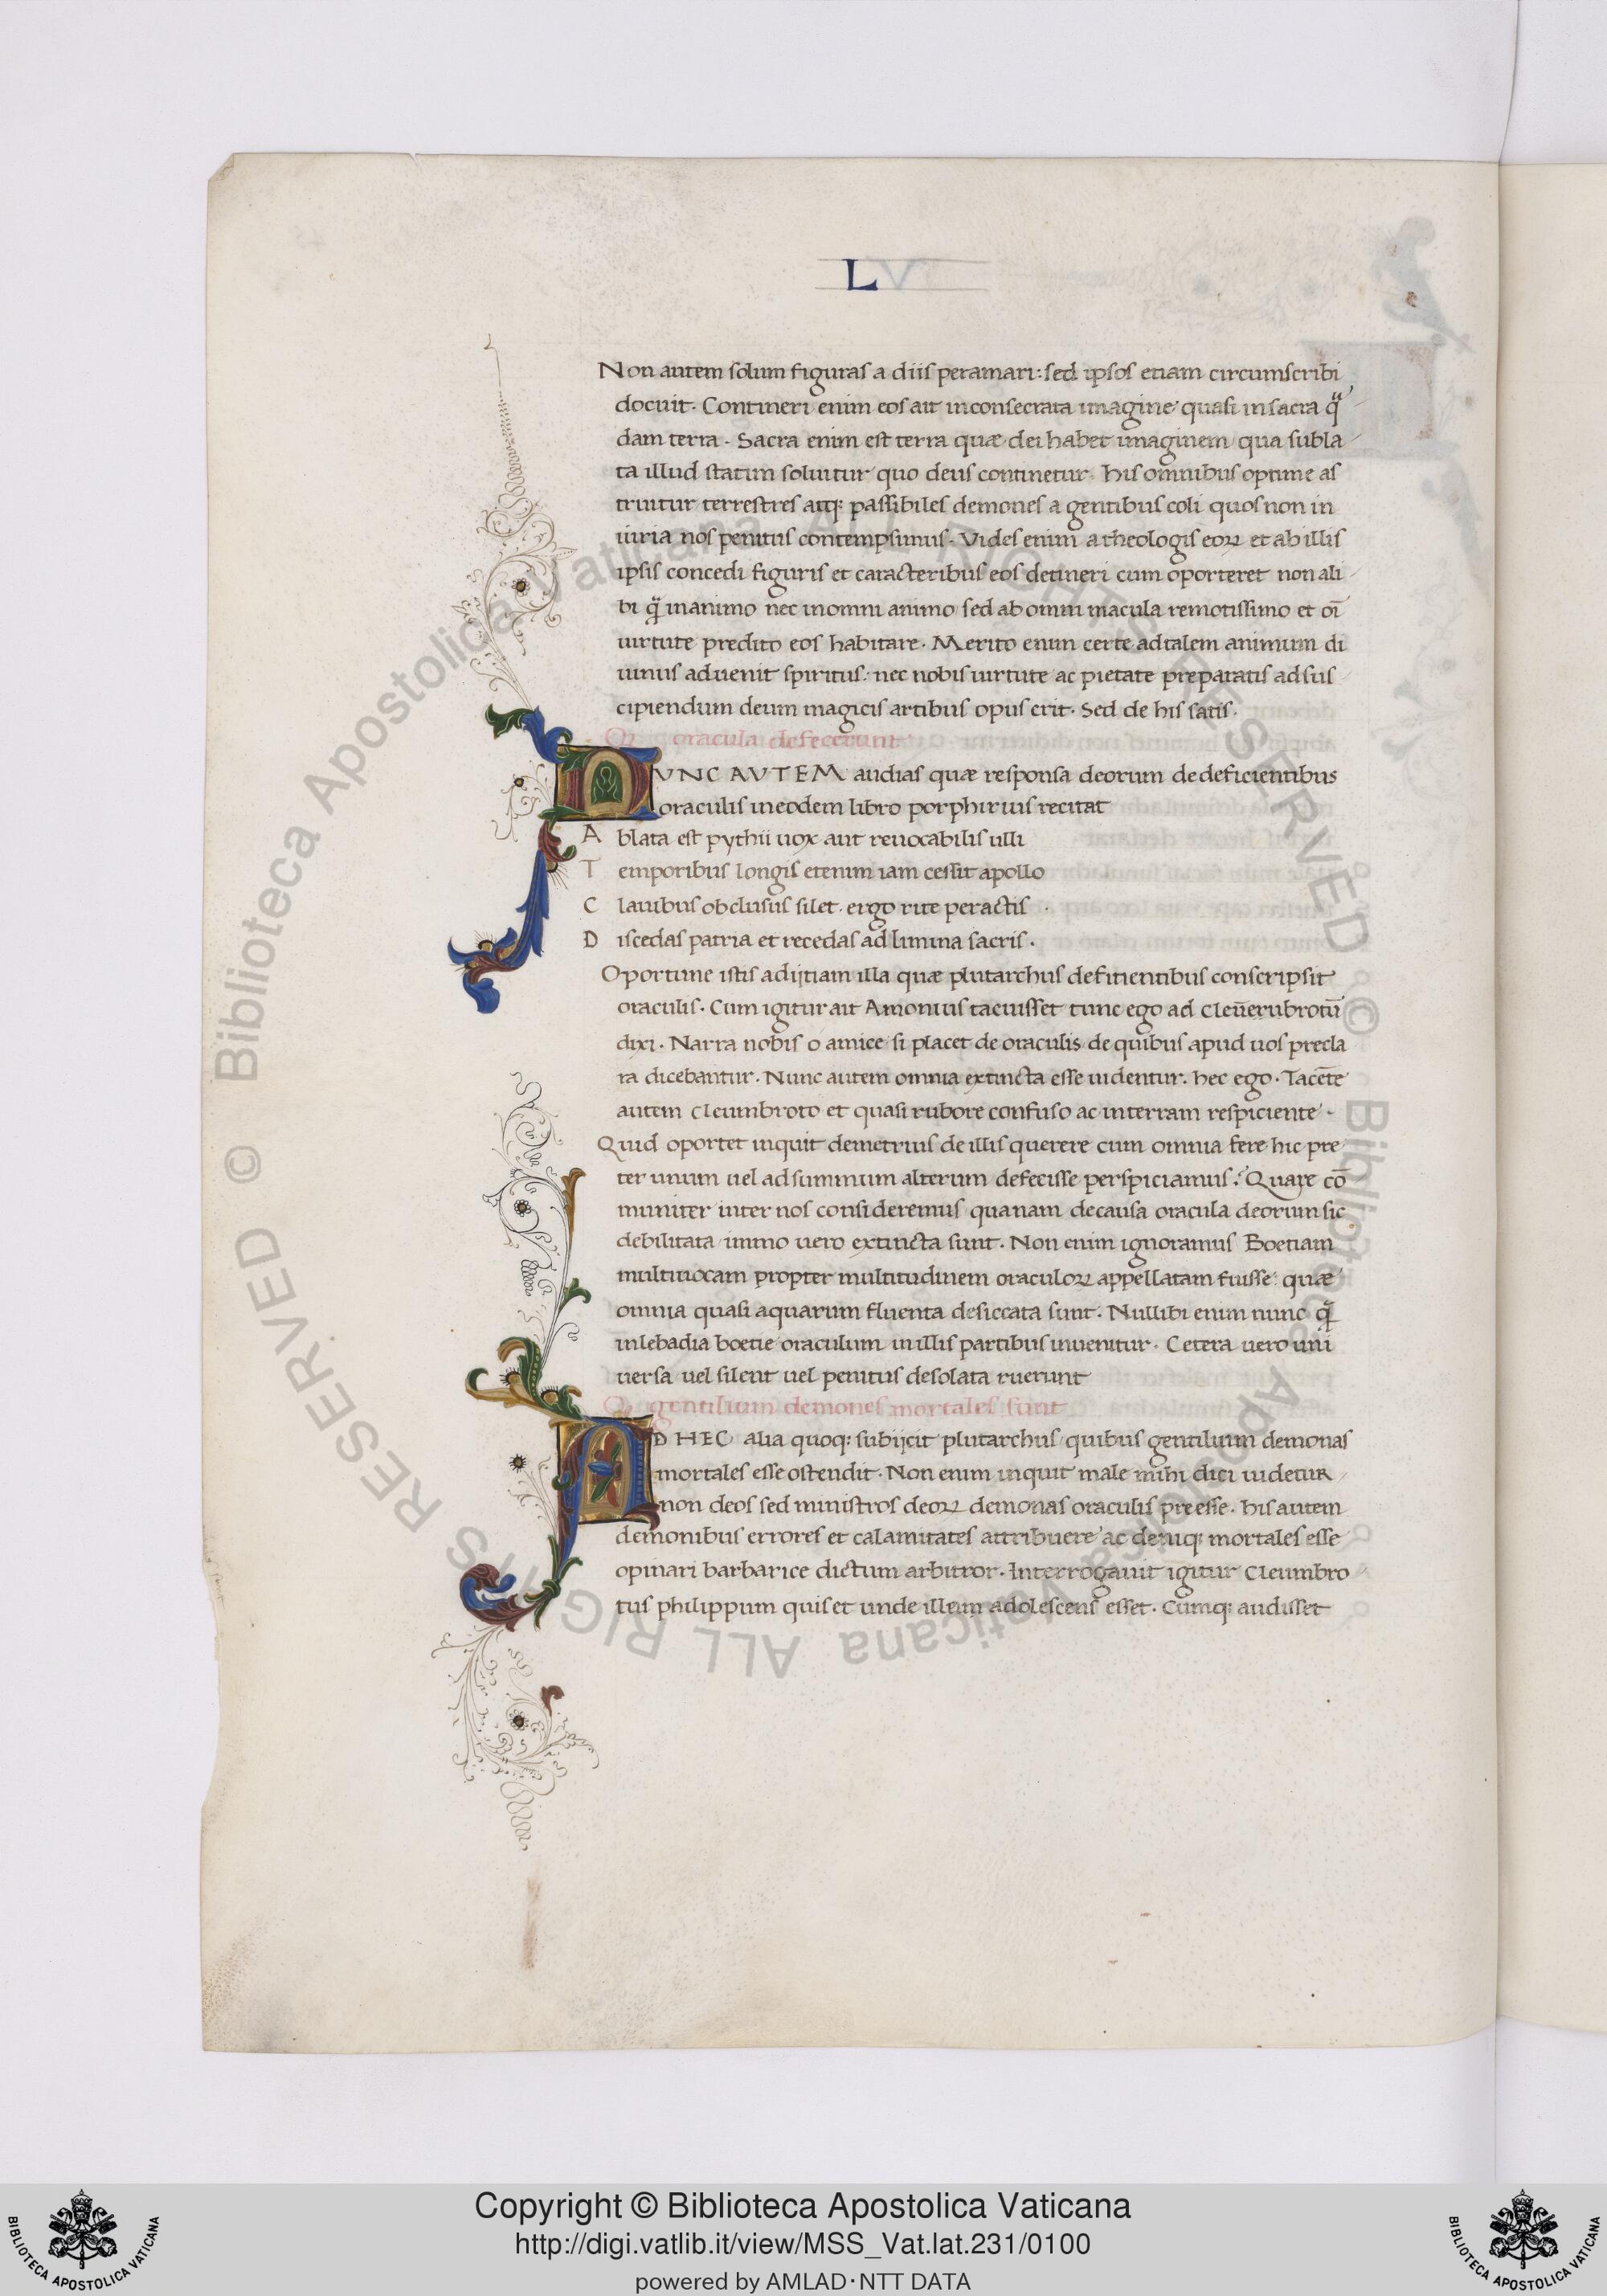 L V
Non autem solum figuras a diis petamari: sed ipsos etiam circumscribi
docuit. Contineri enim eos ait in consecrata imagine quasi in sacra q̃
dam terra. Sacra enim est terra quæ dei habet imaginem qua subla
ta illud statim soluitur quo deus continetur. his omnibus optime as
truitur terrestres atq; passibiles demones a gentibus coli quos non in
iuria nos penitus contempsimus. Vides enim a theologis eoꝝ et ab illis
ipsis concedi figuris et caracteribus eos detineri cum oporteret non ali
bi q̃ in animo nec in omni animo sed ab omni macula remotissimo et oı̄
uirtute predito eos habitare. Merito enim certe ad talem animum di
uinus aduenit spiritus: nec nobis uirtute ac pietate preparatis ad sus
cipiendum deum magicis artibus opus erit. Sed de his satis.
oracula defecerunt
NVNC AVTEM audias quæ responsa deorum de deficientibus
oraculis in eodem libro porphirius recitat
A blata est pythii uox aut reuocabilis ulli
T emporibus longis etenim iam cessit apollo
C lauibus obclusus silet. ergo rite peractis .
D iscedas patria et recedas ad limina sacris.
Oportune istis adijtiam illa quæ plutarchus defitientibus conscripsit
oraculis. Cum igitur ait Amonius tacuisset tunc ego ad Cleūerubrotū
dixi. Narra nobis o amice si placet de oraculis de quibus apud uos precla
ra dicebantur. Nunc autem omnia extincta esse uidentur. hec ego. Tacēte
autem Cleumbroto et quasi rubore confuso ac in terram respiciente.
Quid oportet inquit demetrius de illis querere cum omnia fere hic pre
ter unum uel ad summum alterum defecisse perspiciamus? Quare cō
muniter inter nos consideremus quanam de causa oracula deorum sic
debilitata immo uero extincta sunt. Non enim ignoramus Boetiam
multiuocam propter multitudinem oraculoꝝ appellatam fuisse: quæ
omnia quasi aquarum fluenta desiccata sunt. Nullibi enim nunc q̃
in lebadia boetie oraculum in illis partibus inuenitur. Cetera uero uni
uersa uel silent uel penitus desolata ruerunt
gentilium demones mortales sunt
AD HEC alia quoq; subijcit plutarchus quibus gentilium demonas
mortales esse ostendit. Non enim inquit male mihi dici uidetur
non deos sed ministros deoꝝ demonas oraculis preesse. his autem
demonibus errores et calamitates attribuere ac deniq; mortales esse
opinari barbarice dictum arbitror. Interrogauit igitur Cleumbro
tus philippum quis et unde illeum adolescens esset. Cumq; audisset
© Biblioteca Apostolica Vaticana ALL RIGHTS RESERVED
© Biblioteca Apostolica Vaticana ALL RIGHTS RESERVED
BIBLIOTECA APOSTOLICA VATICANA
Copyright © Biblioteca Apostolica Vaticana
http://digi.vatlib.it/view/MSS_Vat.lat.231/0100
powered by AMLAD·NTT DATA
BIBLIOTECA APOSTOLICA VATICANA